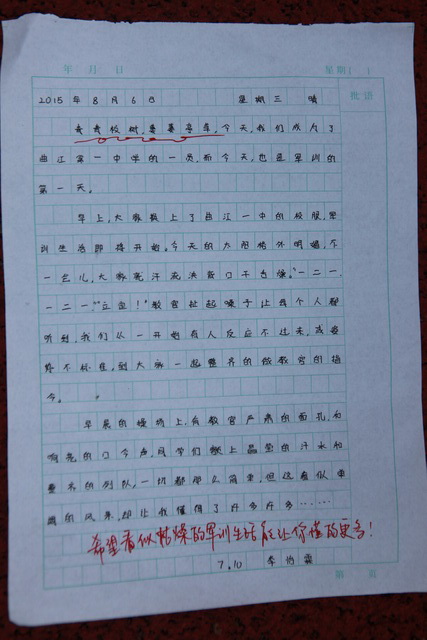 年 月 日 星期( )
批语
2015年8月6日 星期三 晴
青青校树,萋萋亭草,今天,我们成为了
曲江第一中学的一员,而今天,也是军训的
第一天。
早上,大家换上了曲江一中的校服,军
训生活即将开始。今天的太阳格外明媚,不
一会儿,大家汗流浃背口干舌燥。"一二一,
一二一""立正!"教官扯起嗓子让每个人都
听到,我们从一开始有人反应不过来,或姿
势不标准,到大家一起整齐的做教官的指
令。
早晨的操场上,有教官严肃的面孔,和
响亮的口令声,同学们脸上晶莹的汗水和
整齐的列队,一切都那么简单,但这看似单
调的风景,却让我懂得了许多许多……
希望看似枯燥的军训生活能让你懂的更多!
7.10 李怡霖
第 页